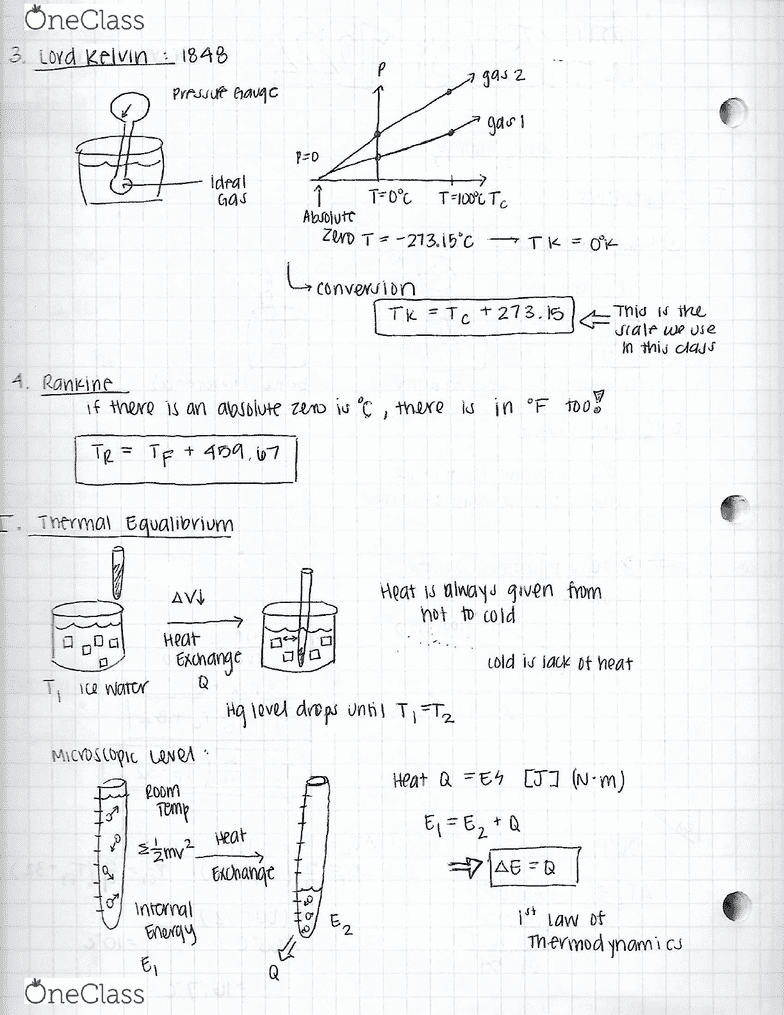 OneClass
3. Lord Kelvin : 1848
Pressure Gauge
Ideal
Gas
P
gas 2
gas 1
P=0
T=0°C
T=100°C
Tc
Absolute
Zero T = -273.15°C → TK = 0°K
↳ conversion
TK = TC + 273.15
⇐ This is the
scale we use
in this class
4. Rankine
if there is an absolute zero is °C, there is in °F too!
TR = TF + 459.67
I. Thermal Equalibrium
ΔV↓
Heat
Exchange
Q
T1 ice water
Heat is always given from
hot to cold
cold is lack of heat
Hg level drops until T1 = T2
Microscopic Level :
Room
Temp
Σ½mv²
Internal
Energy
E1
Heat
Exchange
E2
Q
Heat Q = Eϟ [J] (N·m)
E1 = E2 + Q
⇒ ΔE = Q
1st Law of
Thermodynamics
OneClass